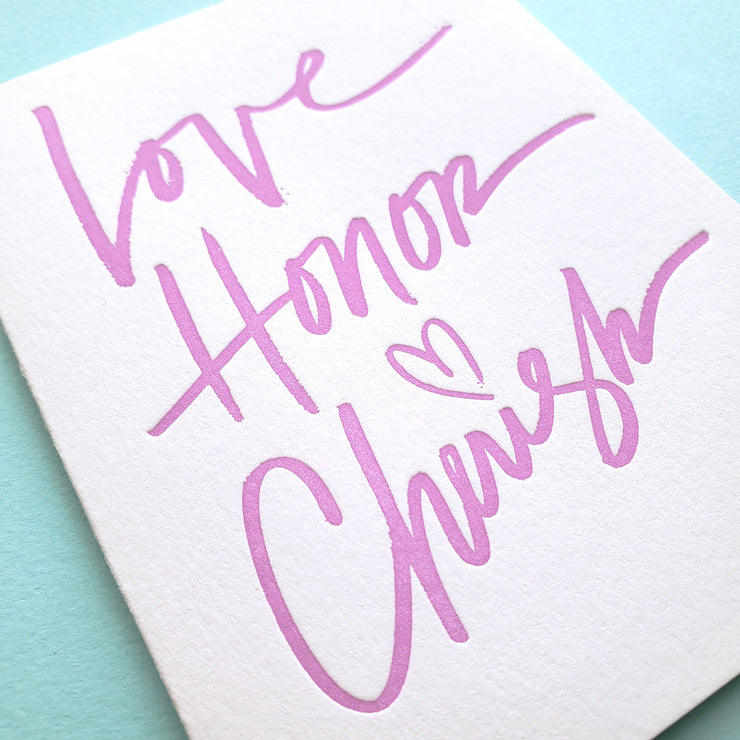 Love
Honor
Cherish